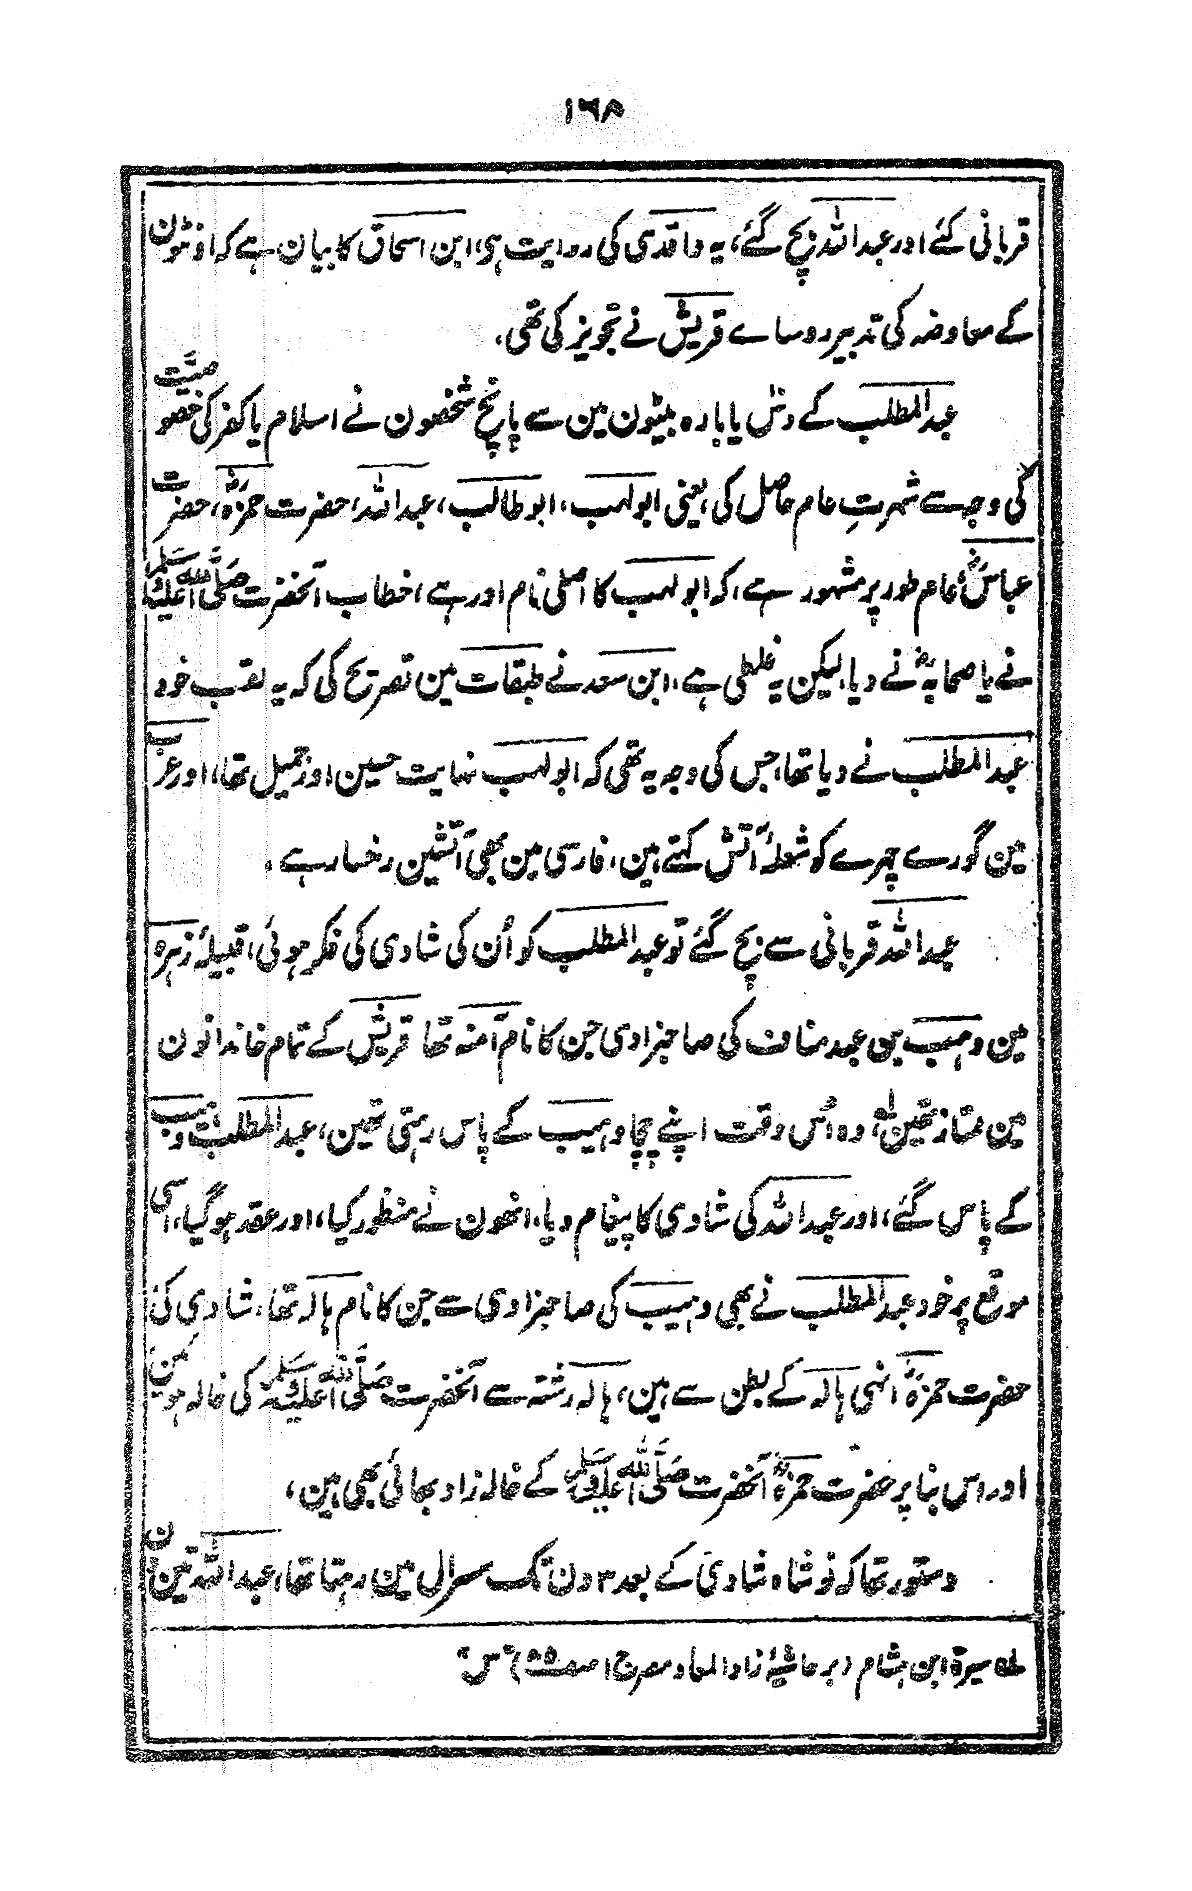 ۱۶۸
قربانی کئے اور عبد اللہ بچ گئے، یہ واقدی کی روایت ہی، ابن اسحاق کا بیان ہے کہ اونٹون
کے معاوضہ کی تدبیر روساے قریش نے تجویز کی تھی.
عبد المطلب کے دس یا بارہ بیٹون مین سے پانچ شخصون نے اسلام یا کفر کی خصوصیت
کی وجہ سے شہرتِ عام حاصل کی، یعنی ابو لہب، ابو طالب، عبد اللہ، حضرت حمزہؓ، حضرت
عباسؓ، عام طور پر مشہور ہے، کہ ابو لہب کا اصلی نام اور ہے، خطاب آنحضرت صَلَّی اللہ عَلَیْہِ وَسَلَّم
نے یا صحابہؓ نے دیا، لیکن یہ غلطی ہے، ابن سعد نے طبقات مین تصریح کی کہ یہ لقب خود
عبد المطلب نے دیا تھا، جس کی وجہ یہ تھی کہ ابو لہب نہایت حسین اور جمیل تھا، اور عرب
مین گورے چہرے کو شعلۂ آتش کہتے ہین، فارسی مین بھی آتشین رخسار ہے.
عبد اللہ قربانی سے بچ گئے تو عبد المطلب کو اُن کی شادی کی فکر ہوئی، قبیلۂ زہرہ
مین وہب بن عبد مناف کی صاحبزادی جن کا نام آمنہ تھا قریش کے تمام خاندانون
مین ممتاز تھین، وہ اُس وقت اپنے چچا وہیب کے پاس رہتی تھین، عبد المطلب وہیب
کے پاس گئے، اور عبد اللہ کی شادی کا پیغام دیا، انھون نے منظور کیا، اور عقد ہو گیا، اسی
موقع پر خود عبد المطلب نے بھی وہیب کی صاحبزادی سے جن کا نام ہالہ تھا، شادی کی،
حضرت حمزہؓ انہی ہالہ کے بطن سے ہین، ہالہ رشتہ سے آنحضرت صَلَّی اللہ عَلَیْہِ وَسَلَّم کی خالہ ہوئین
اور اس بنا پر حضرت حمزہؓ آنحضرت صَلَّی اللہ عَلَیْہِ وَسَلَّم کے خالہ زاد بھائی بھی ہین،
دستور تھا کہ نوشاہ شادی کے بعد ۳ دن تک سسرال مین رہتا تھا، عبد اللہ تین دن
لہ سیرۃ ابن ہشام (بر حاشیۂ زاد المعاد مصر ج ا صفحہ ۸۵) "س"